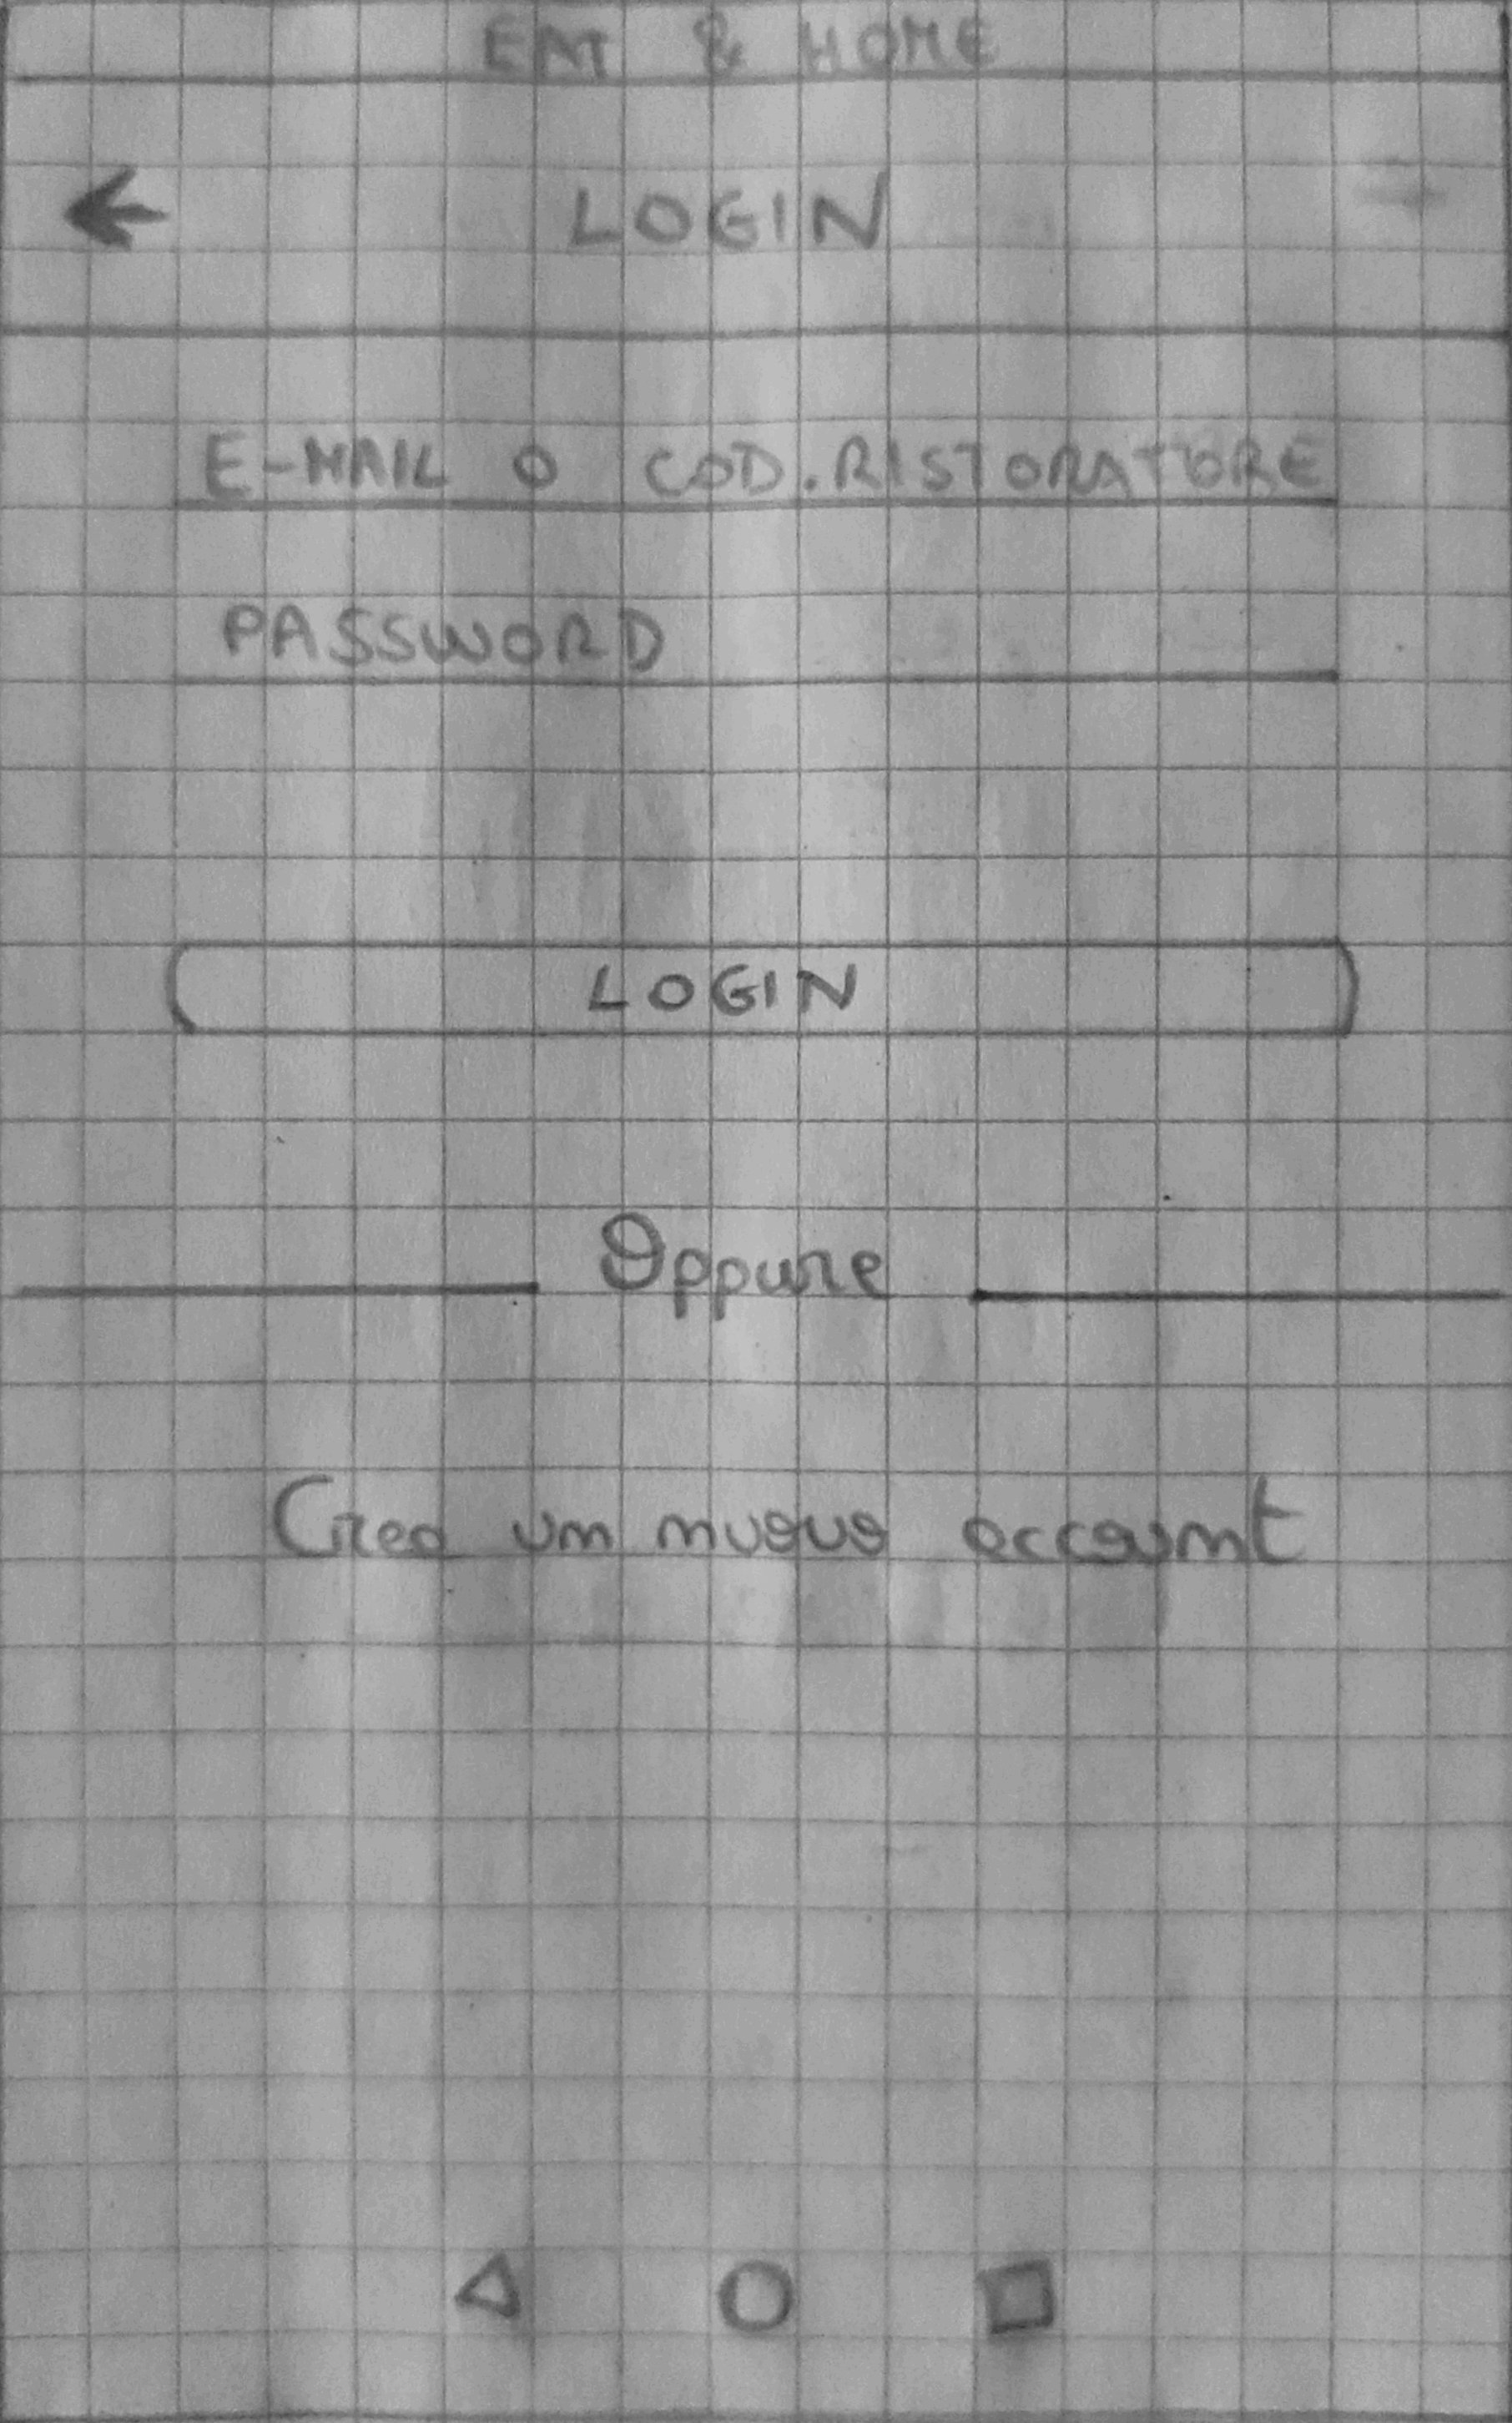 EAT & HOME
LOGIN
E-MAIL O COD.RISTORATORE
PASSWORD
LOGIN
Oppure
Crea un nuovo account